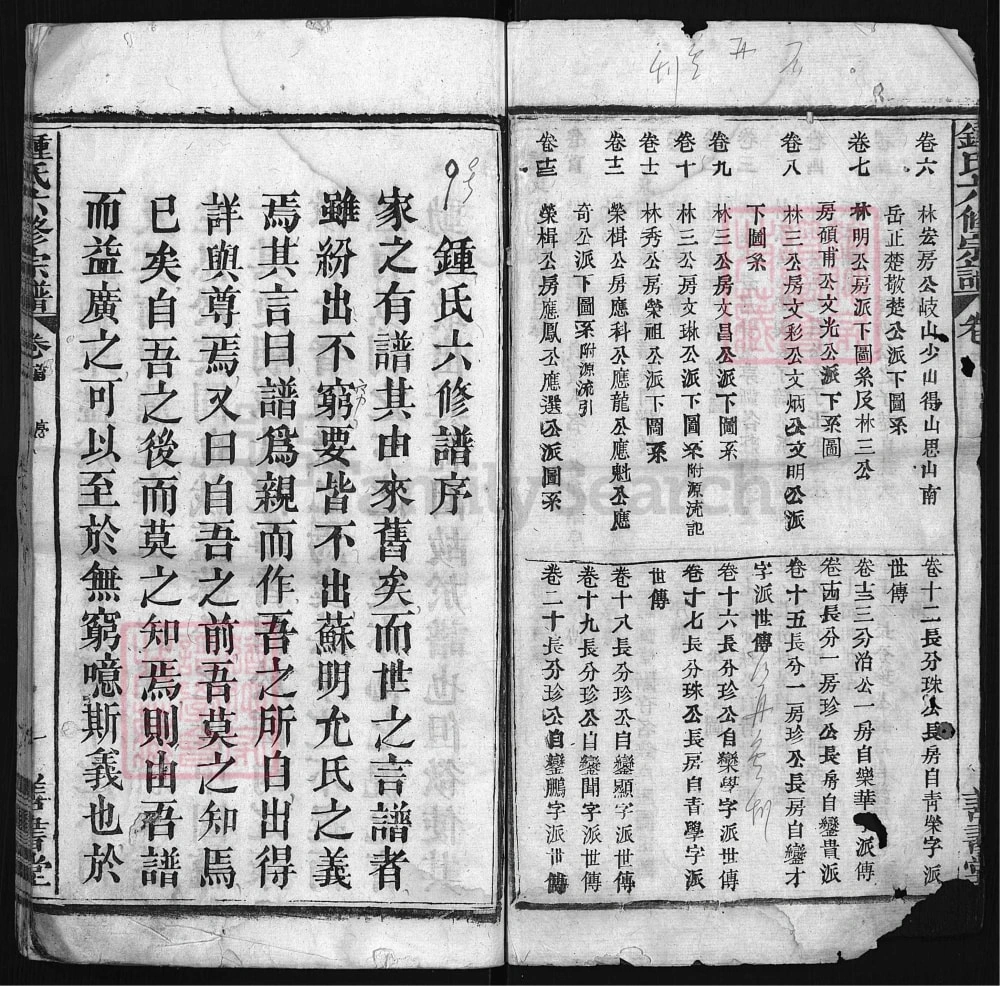 卷六　林宏房公岐山少山得山思山南
岳正楚敬楚公派下圖系
卷七　林明公房派下圖系及林三公
房碩甫公文光公派下系圖
卷八　林三公房文彩公文炳公文明公派
下圖系
卷九　林三公房文昌公派下圖系
卷十　林三公房文琳公派下圖系附源流記
卷十一　林秀公房榮祖公派下圖系
卷十二　榮楫公房應科公應龍公應魁公應
奇公派下圖系附源流引
卷十三　榮楫公房應鳳公應選公派圖系
卷十二長分珠公長房自靑榮字派
世傳
卷十三三分治公一房自樂華派傳
卷十四長分一房珍公長房自鑾貴派
卷十五長分一房珍公長房自鑾才
字派世傳
卷十六長分珍公自欒學字派世傳
卷十七長分珠公長房自青學字派
世傳
卷十八長分珍公自鑾顯字派世傳
卷十九長分珍公自鑾聞字派世傳
卷二十長分珍公自鑾鵬字派世傳
鍾氏六修宗譜
卷
鍾氏六修譜序
家之有譜其由來舊矣而世之言譜者
雖紛出不窮要皆不出蘇明允氏之義
焉其言曰譜爲親而作吾之所自出得
詳與尊焉又曰自吾之前吾莫之知焉
已矣自吾之後而莫之知焉則由吾譜
而益廣之可以至於無窮噫斯義也於
鍾氏六修宗譜
卷首
序
一
FamilySearch